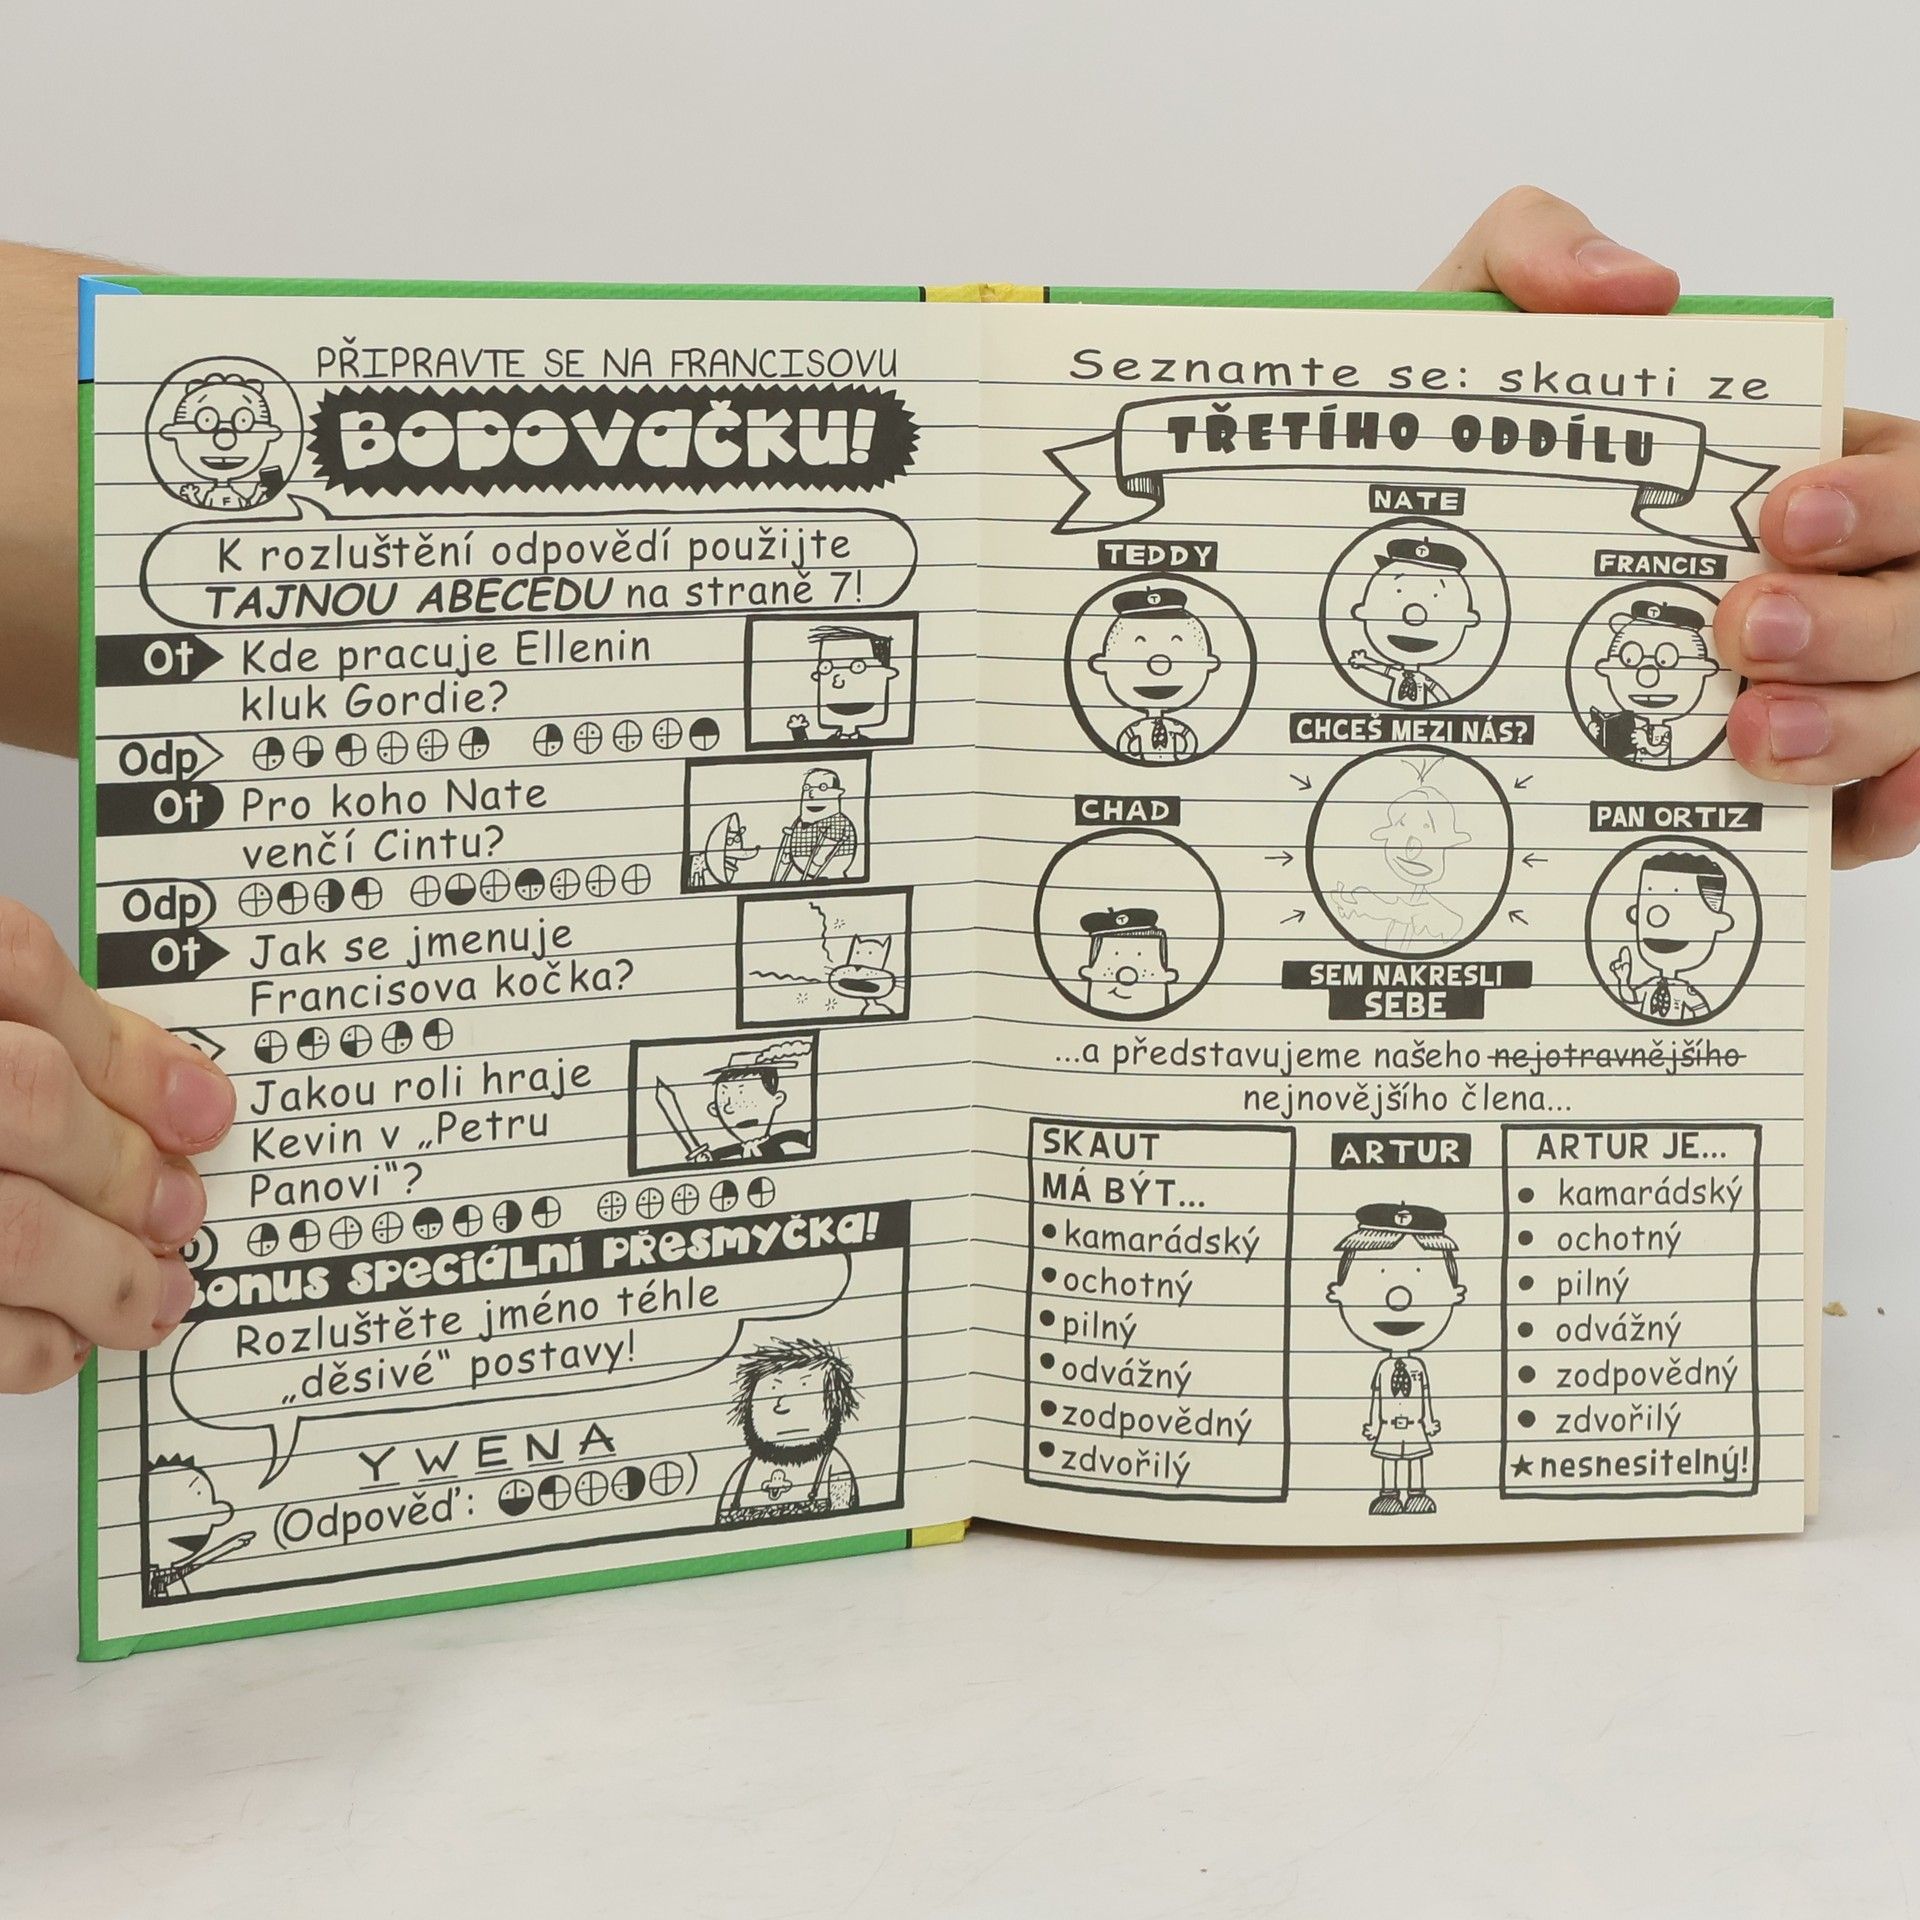 PŘIPRAVTE SE NA FRANCISOVU
BODOVAČKU!
K rozluštění odpovědí použijte
TAJNOU ABECEDU na straně 7!
Ot Kde pracuje Ellenin
kluk Gordie?
Odp
Ot Pro koho Nate
venčí Cintu?
Odp
Ot Jak se jmenuje
Francisova kočka?
Jakou roli hraje
Kevin v „Petru
Panovi"?
BONUS SPECIÁLNÍ PŘESMYČKA!
Rozluštěte jméno téhle
„děsivé" postavy!
Y W E N A
(Odpověď: )
F
Seznamte se: skauti ze
TŘETÍHO ODDÍLU
NATE
TEDDY
FRANCIS
CHCEŠ MEZI NÁS?
CHAD
PAN ORTIZ
SEM NAKRESLI
SEBE
...a představujeme našeho nejotravnějšího
nejnovějšího člena...
SKAUT
MÁ BÝT...
• kamarádský
• ochotný
• pilný
• odvážný
• zodpovědný
• zdvořilý
ARTUR
ARTUR JE...
• kamarádský
• ochotný
• pilný
• odvážný
• zodpovědný
• zdvořilý
★ nesnesitelný!